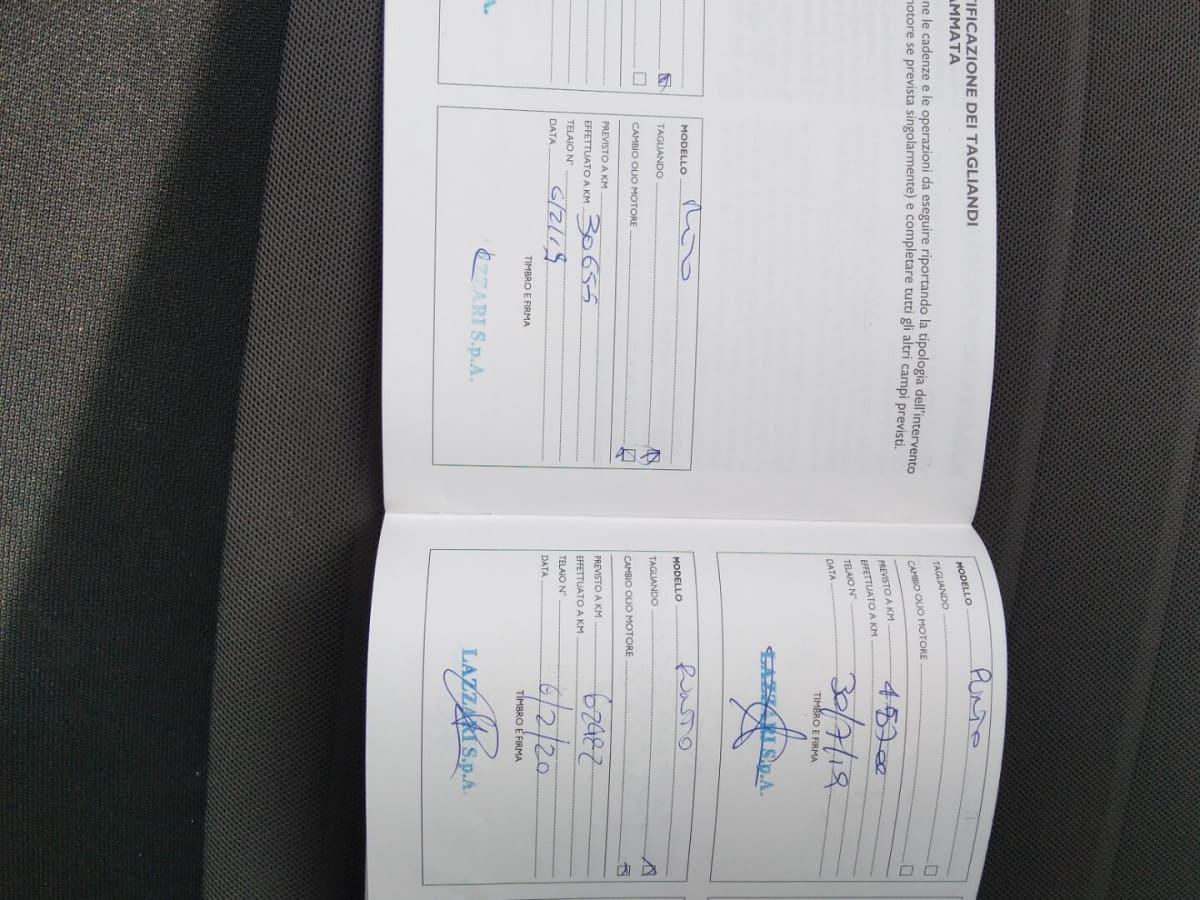 IFICAZIONE DEI TAGLIANDI
AMMATA
ne le cadenze e le operazioni da eseguire riportando la tipologia dell'intervento
motore se prevista singolarmente) e completare tutti gli altri campi previsti.
A.
MODELLO PUNTO
TAGLIANDO
CAMBIO OLIO MOTORE
PREVISTO A KM
EFFETTUATO A KM 30655
TELAIO N°
DATA 6/2/19
TIMBRO E FIRMA
ZZARI S.p.A.
MODELLO PUNTO
TAGLIANDO
CAMBIO OLIO MOTORE
PREVISTO A KM
EFFETTUATO A KM 45700
TELAIO N°
DATA 30/7/19
TIMBRO E FIRMA
LAZZARI S.p.A.
MODELLO PUNTO
TAGLIANDO
CAMBIO OLIO MOTORE
PREVISTO A KM
EFFETTUATO A KM 62482
TELAIO N°
DATA 6/2/20
TIMBRO E FIRMA
LAZZARI S.p.A.